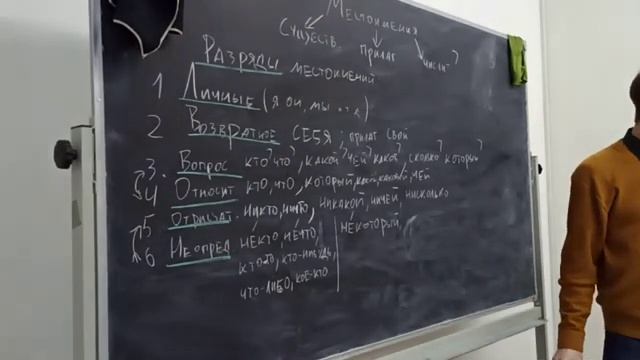 Местоимения
Существ прилаг числит?
Разряды местоимений
1 Личные (я он, мы и т.д.)
2 Возвратное себя; прилаг свой
3. Вопрос кто? что?, какой? чей? каков?, сколько? который?
4 Относит кто, что, который, какой, каковой, чей
5 Отрицат. никто, ничто, никакой, ничей, нисколько
6 Неопред некто, нечто, некоторый,
кто-то, кто-нибудь,
что-либо, кое-кто